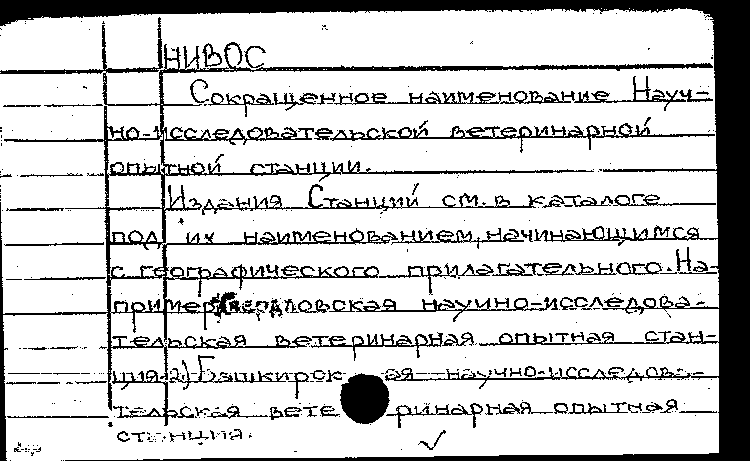 НИВОС
Сокращенное наименование Науч-
но-исследовательской ветеринарной
опытной станции.
Издания Станций см. в каталоге
под их наименованием, начинающимся
с географического прилагательного. На-
пример: Свердловская научно-исследова-
тельская ветеринарная опытная стан-
ция. 2) Башкирская научно-исследова-
тельская ветеринарная опытная
станция.